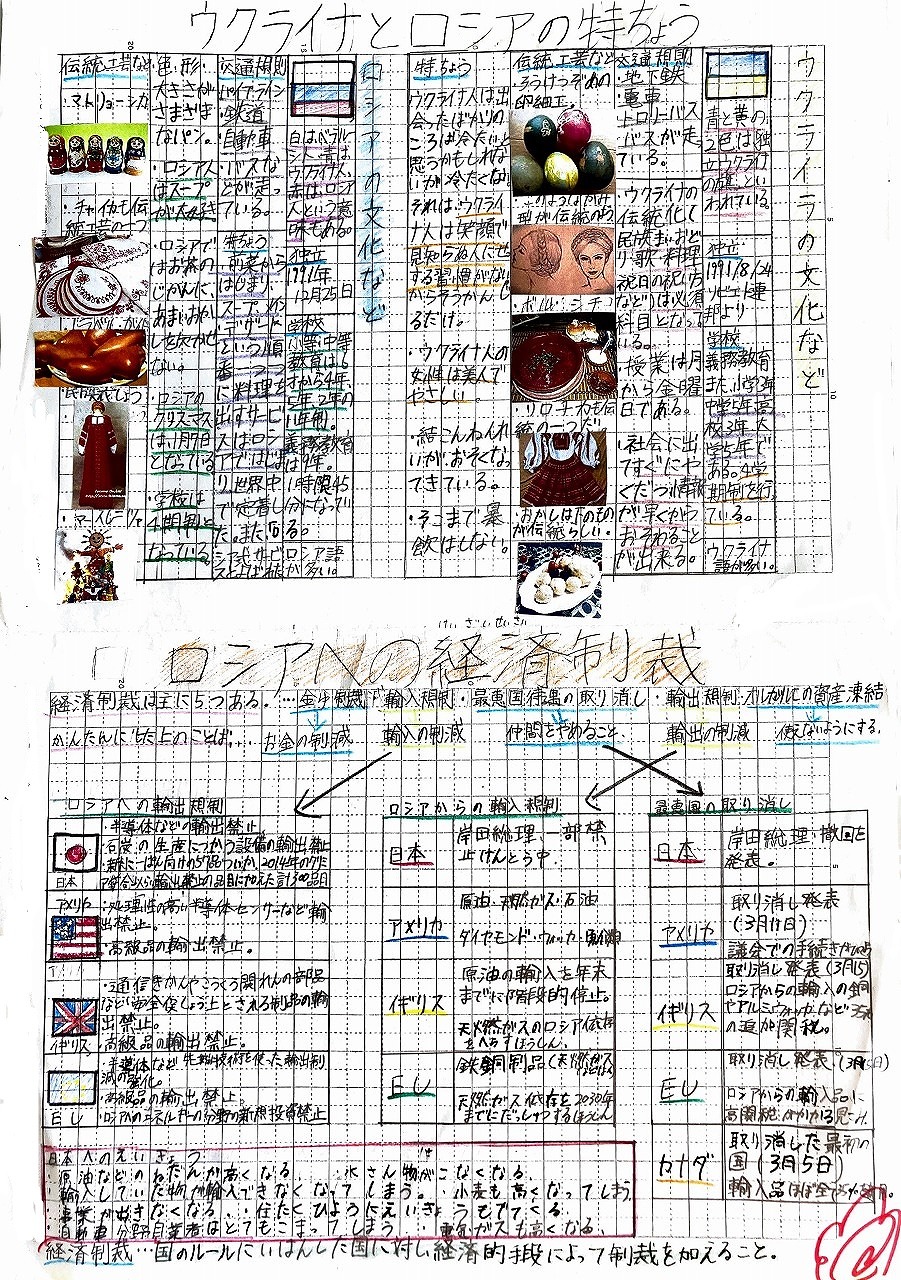 ウクライナとロシアの特ちょう
ウクライナの文化など
青と黄の
2色は独
立ウクライナ
の旗とい
われている。
独立
1991/8/24
ソビエト連
邦より
学校
義務教育
また、小学3年
中学5年高
校3年、大
学5年で
ある。4学
期制を行
っている。
ウクライナ
語が多い。
交通規則
・地下鉄
・電車
・トロリーバス
バスが走っ
ている。
・ウクライナの
伝統化し
民族まいおど
り歌、料理
祝日の祝い方
などりは必須
科目となって
いる。
・授業は月
から金曜
日である。
・社会に出
てすぐにや
くだつ情報
が早くから
おそわること
が出来る。
伝統工芸など
ろうけつぞめの
卵細工。
・ボルシチ
・おかしは下のもの
が伝統らしい。
特ちょう
ウクライナ人は出
会ったばかりの
ころは冷たいと
思うかもしれな
いが冷たくない
それは、ウクライ
ナ人は笑顔で
見知らぬ人にせ
する習慣がない
からそうかんじ
るだけ。
・ウクライナ人の
女性は美人で
やさしい。
・結こんねんれ
いが、おそくなっ
てきている。
・そこまで暴
飲はしない。
ロシアの文化など
白はベラルー
シ人、青は
ウクライナ人、
赤はロシア
人という意
味もある。
独立
1991年、
12月25日
学校
小等、中等
教育は6
才から4年、
5年、2年の
11年制。
義務教育
は9年。
1時間45
分になってい
る。
ロシア語
が多い。
交通規則
パイプライン
・鉄道
・自動車
・バスな
どが走っ
ている。
特ちょう
・前菜から
はじまり、
スープ、メイン
デザート
という順
番一つ一つ
に料理を
出すサービ
スはロシ
アではじま
り世界中
で定着し
た。また、ロ
シア式サービ
スとよばれた
色・形・
大きさが
さまざま
なパン。
・ロシア人
はスープ
が大好き
・ロシアで
はお茶の
じかんに、
あまいおかし
は欠かせ
ない。
・ロシアの
クリスマス
は、1月7日
となっている
・学校は
4期制と
なっている。
伝統工芸など
・マトリョーシカ
・チャイカも伝
統工芸の一つ
・民族衣しょう
けいざいせいさい
ロシアへの経済制裁
経済制裁は主に5つある。…金融制裁・輸入規制・最恵国待遇の取り消し・輸出規制・オリガルヒの資産凍結
かんたんにした上のことば… お金の制減 輸入の制減 仲間をやめること、 輸出の制減 使えないようにする。
ロシアへの輸出規制
日本
・半導体などの輸出禁止
・石炭の生産につかう設備の輸出禁止
アメリカ
・処理性の高い半導体・センサーなど輸
出禁止。
・高級品の輸出禁止。
イギリス
・交通信きかんやこうくう関れんの部品
など安全ほしょう上とされる制品の輸
出禁止。
・高級品の輸出禁止。
EU
・半導体など先端技術を使った輸出制
減の強化。
・高級品の輸出禁止。
・ロシアのエネルギーの分野の新規投資禁止
ロシアからの輸入規制
日本
岸田総理、一部禁
止けんとう中
アメリカ
原油・天然ガス・石油
ダイヤモンド・ウォッカ・魚介類
イギリス
原油の輸入を年末
までに階段的停止。
天然ガスのロシア依存
をへらすほうしん。
EU
鉄鋼制品
天然ガス依存を2030年
までにだっしゃするほうしん
最恵国の取り消し
日本
岸田総理、撤回を
発表。
アメリカ
取り消し発表
(3月11日)
議会での手続きがひつよう
イギリス
取り消し発表(3月15)
ロシアからの輸入の銅
やアルミ、ウォッカなど35%
の追加関税。
EU
取り消し発表、(3月15日)
ロシアからの輸入品に
高関税がかかる見こみ
カナダ
取り消した最初の
国(3月5日)
日本へのえいきょう
・原油などのねだんが高くなる ・水さん物がこなくなる。
・輸入していた物が輸入できなくなってしまう。・小麦も高くなってしまう
・事業が出きなくなる。・住たくひようにえいきょうもでてくる。
・自動車分野自業者はとてもこまってしまう ・電気、ガスも高くなる。
経済制裁…国のルールにいはんした国に対し経済的手段によって制裁を加えること。